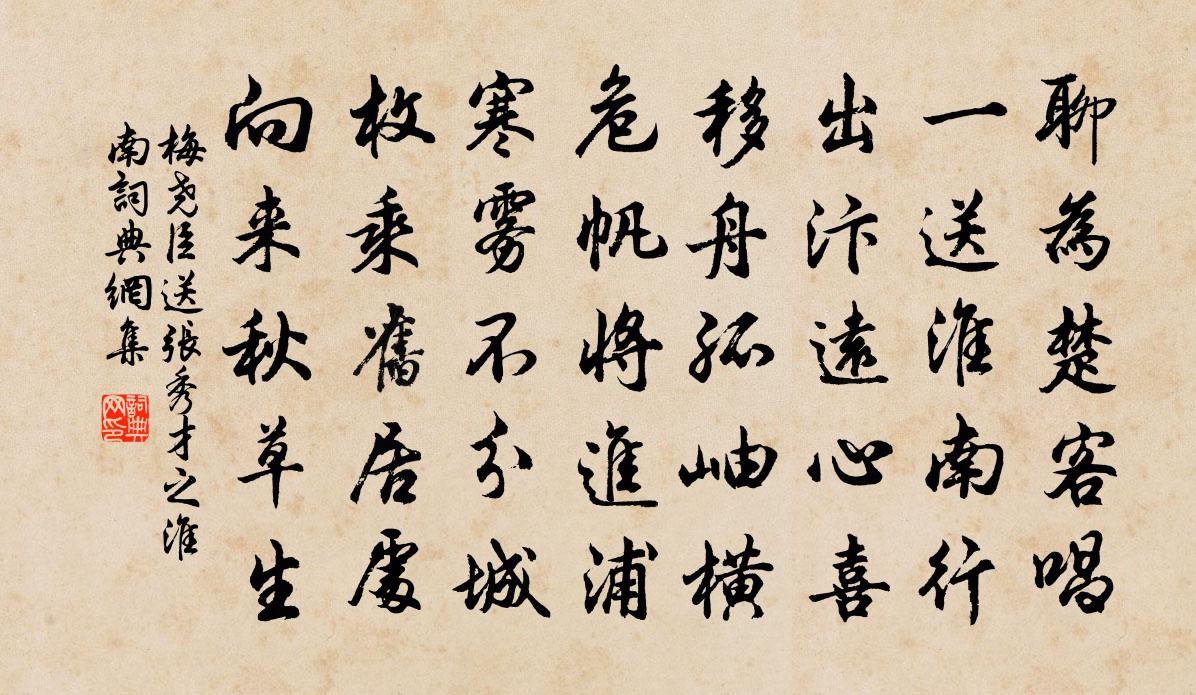 聊為楚客唱
一送淮南行
出汴遠心喜
移舟孤岫橫
危帆將進浦
寒雾不分城
枚乘舊居處
向来秋草生
梅尧臣送張秀才之淮
南詞典網集
詞典网印